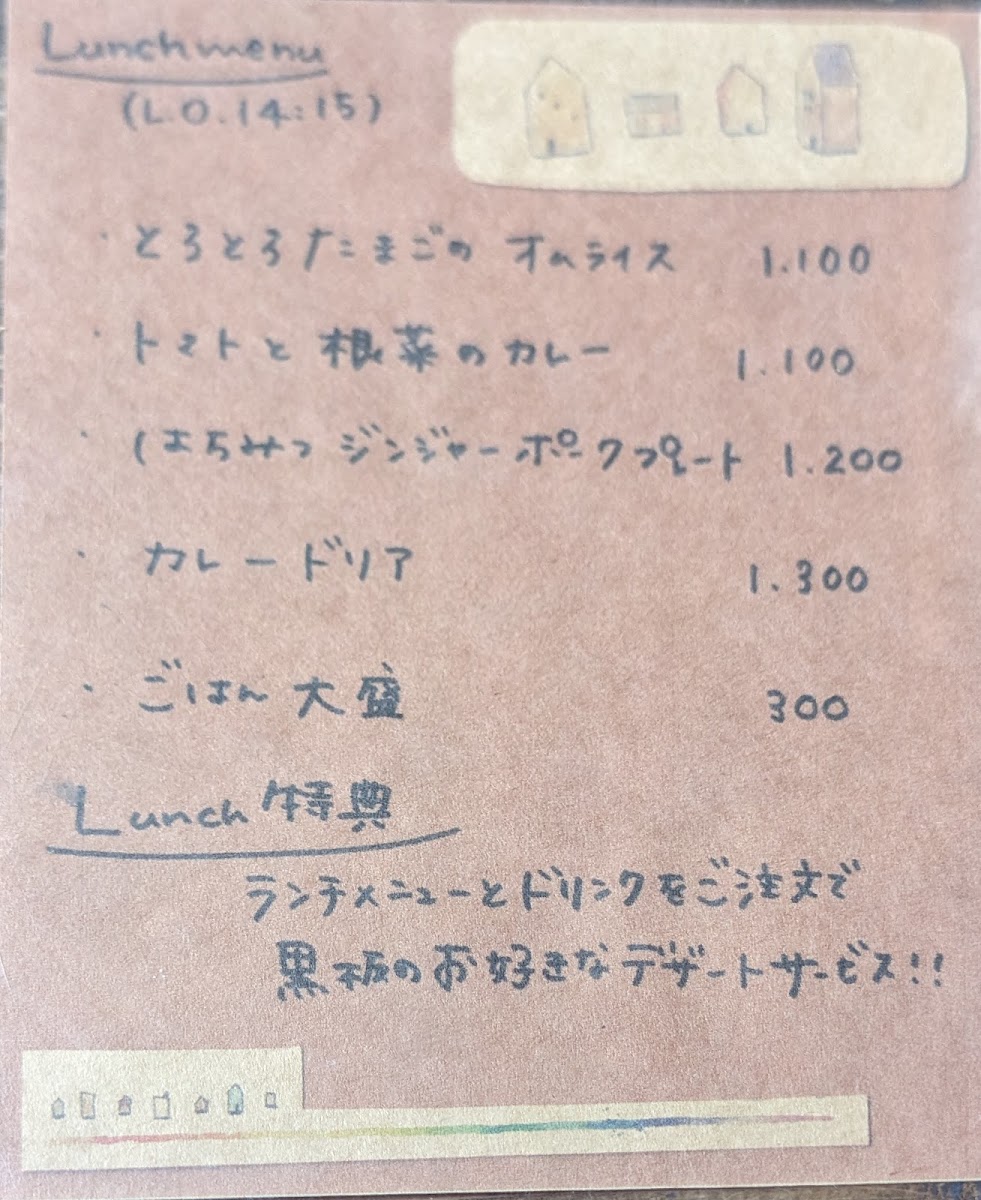 Lunch menu
(L.O.14:15)
・とろとろたまごの オムライス 1.100
・トマトと根菜のカレー 1.100
・はちみつ ジンジャーポークプレート 1.200
・カレードリア 1.300
・ごはん大盛 300
Lunch特典
ランチメニューとドリンクをご注文で
黒板のお好きなデザートサービス!!